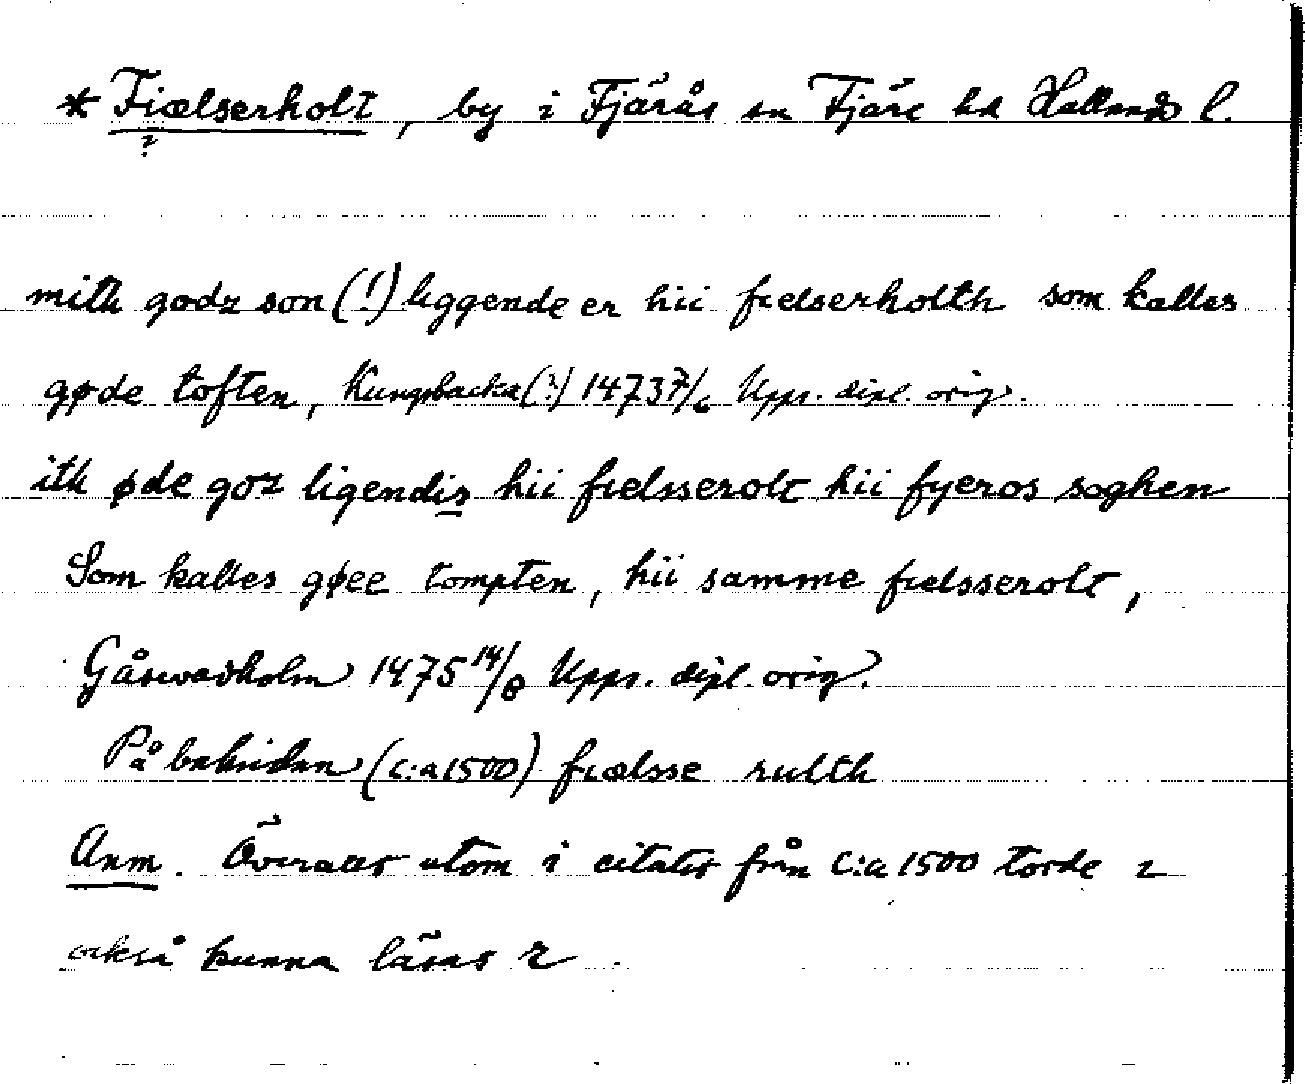 * Fiælserholt, by i Fjärås sn Fjäre hd Hallands l.
?
mith godz son (!) liggende er hii fielserholth som kalles
gøde toften, Kungsbacka (?) 1473 7/6 Upps. dipl. orig.
ith øde goz ligendis hii fielsserolt hii fyeros soghen
Som kalles gøee tompten, hii samme fielsserolt,
Gåsevadholm 1475 14/8 Upps. dipl. orig.
På baksidan (c:a 1500) fiælsse rulth
Anm. Överallt utom i citatet från c:a 1500 torde i
också kunna läsas r